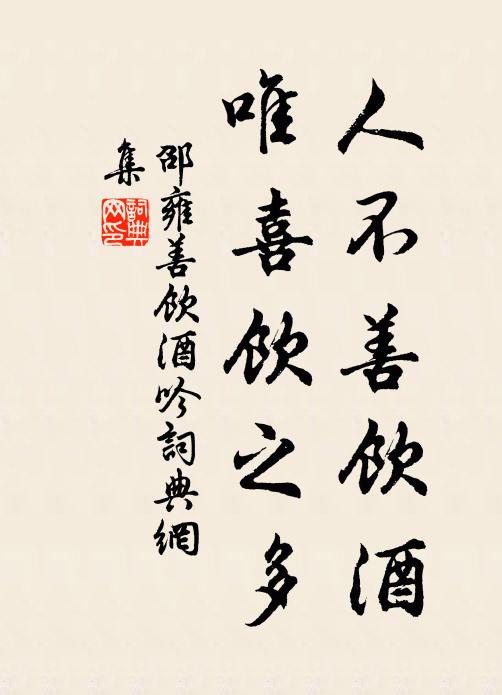 人不善飲酒
唯喜飲之多
邵雍善飲酒吟詞典網
集
詞典
网印